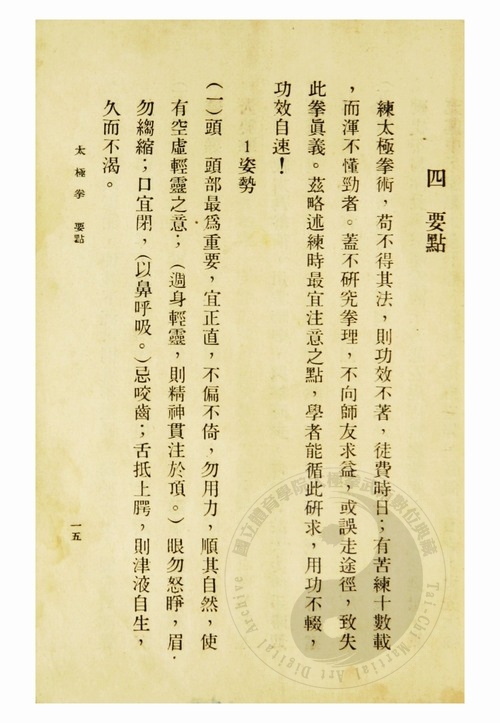 四　要點
練太極拳術，苟不得其法，則功效不著，徒費時日；有苦練十數載
，而渾不懂勁者。蓋不研究拳理，不向師友求益，或誤走途徑，致失
此拳眞義。茲略述練時最宜注意之點，學者能循此研求，用功不輟，
功效自速！
1 姿勢
（一）頭　頭部最爲重要，宜正直，不偏不倚，勿用力，順其自然，使
有空虛輕靈之意；（週身輕靈，則精神貫注於頂。）眼勿怒睜，眉
勿縐縮；口宜閉，（以鼻呼吸。）忌咬齒；舌抵上腭，則津液自生，
久而不渴。
太極拳　要點
一五
國立體育學院 太極拳武術數位典藏
Tai-Chi Martial Art Digital Archive